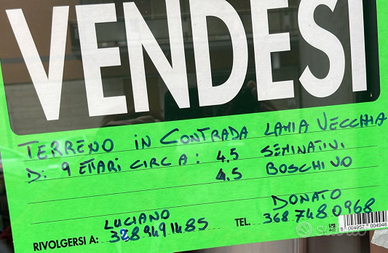 VENDESI
TERRENO IN CONTRADA LAMIA VECCHIA
DI 9 ETTARI CIRCA: 4,5 SEMINATIVI
4,5 BOSCHIVO
LUCIANO DONATO
RIVOLGERSI A: 328 9491485 TEL. 368 748 0968